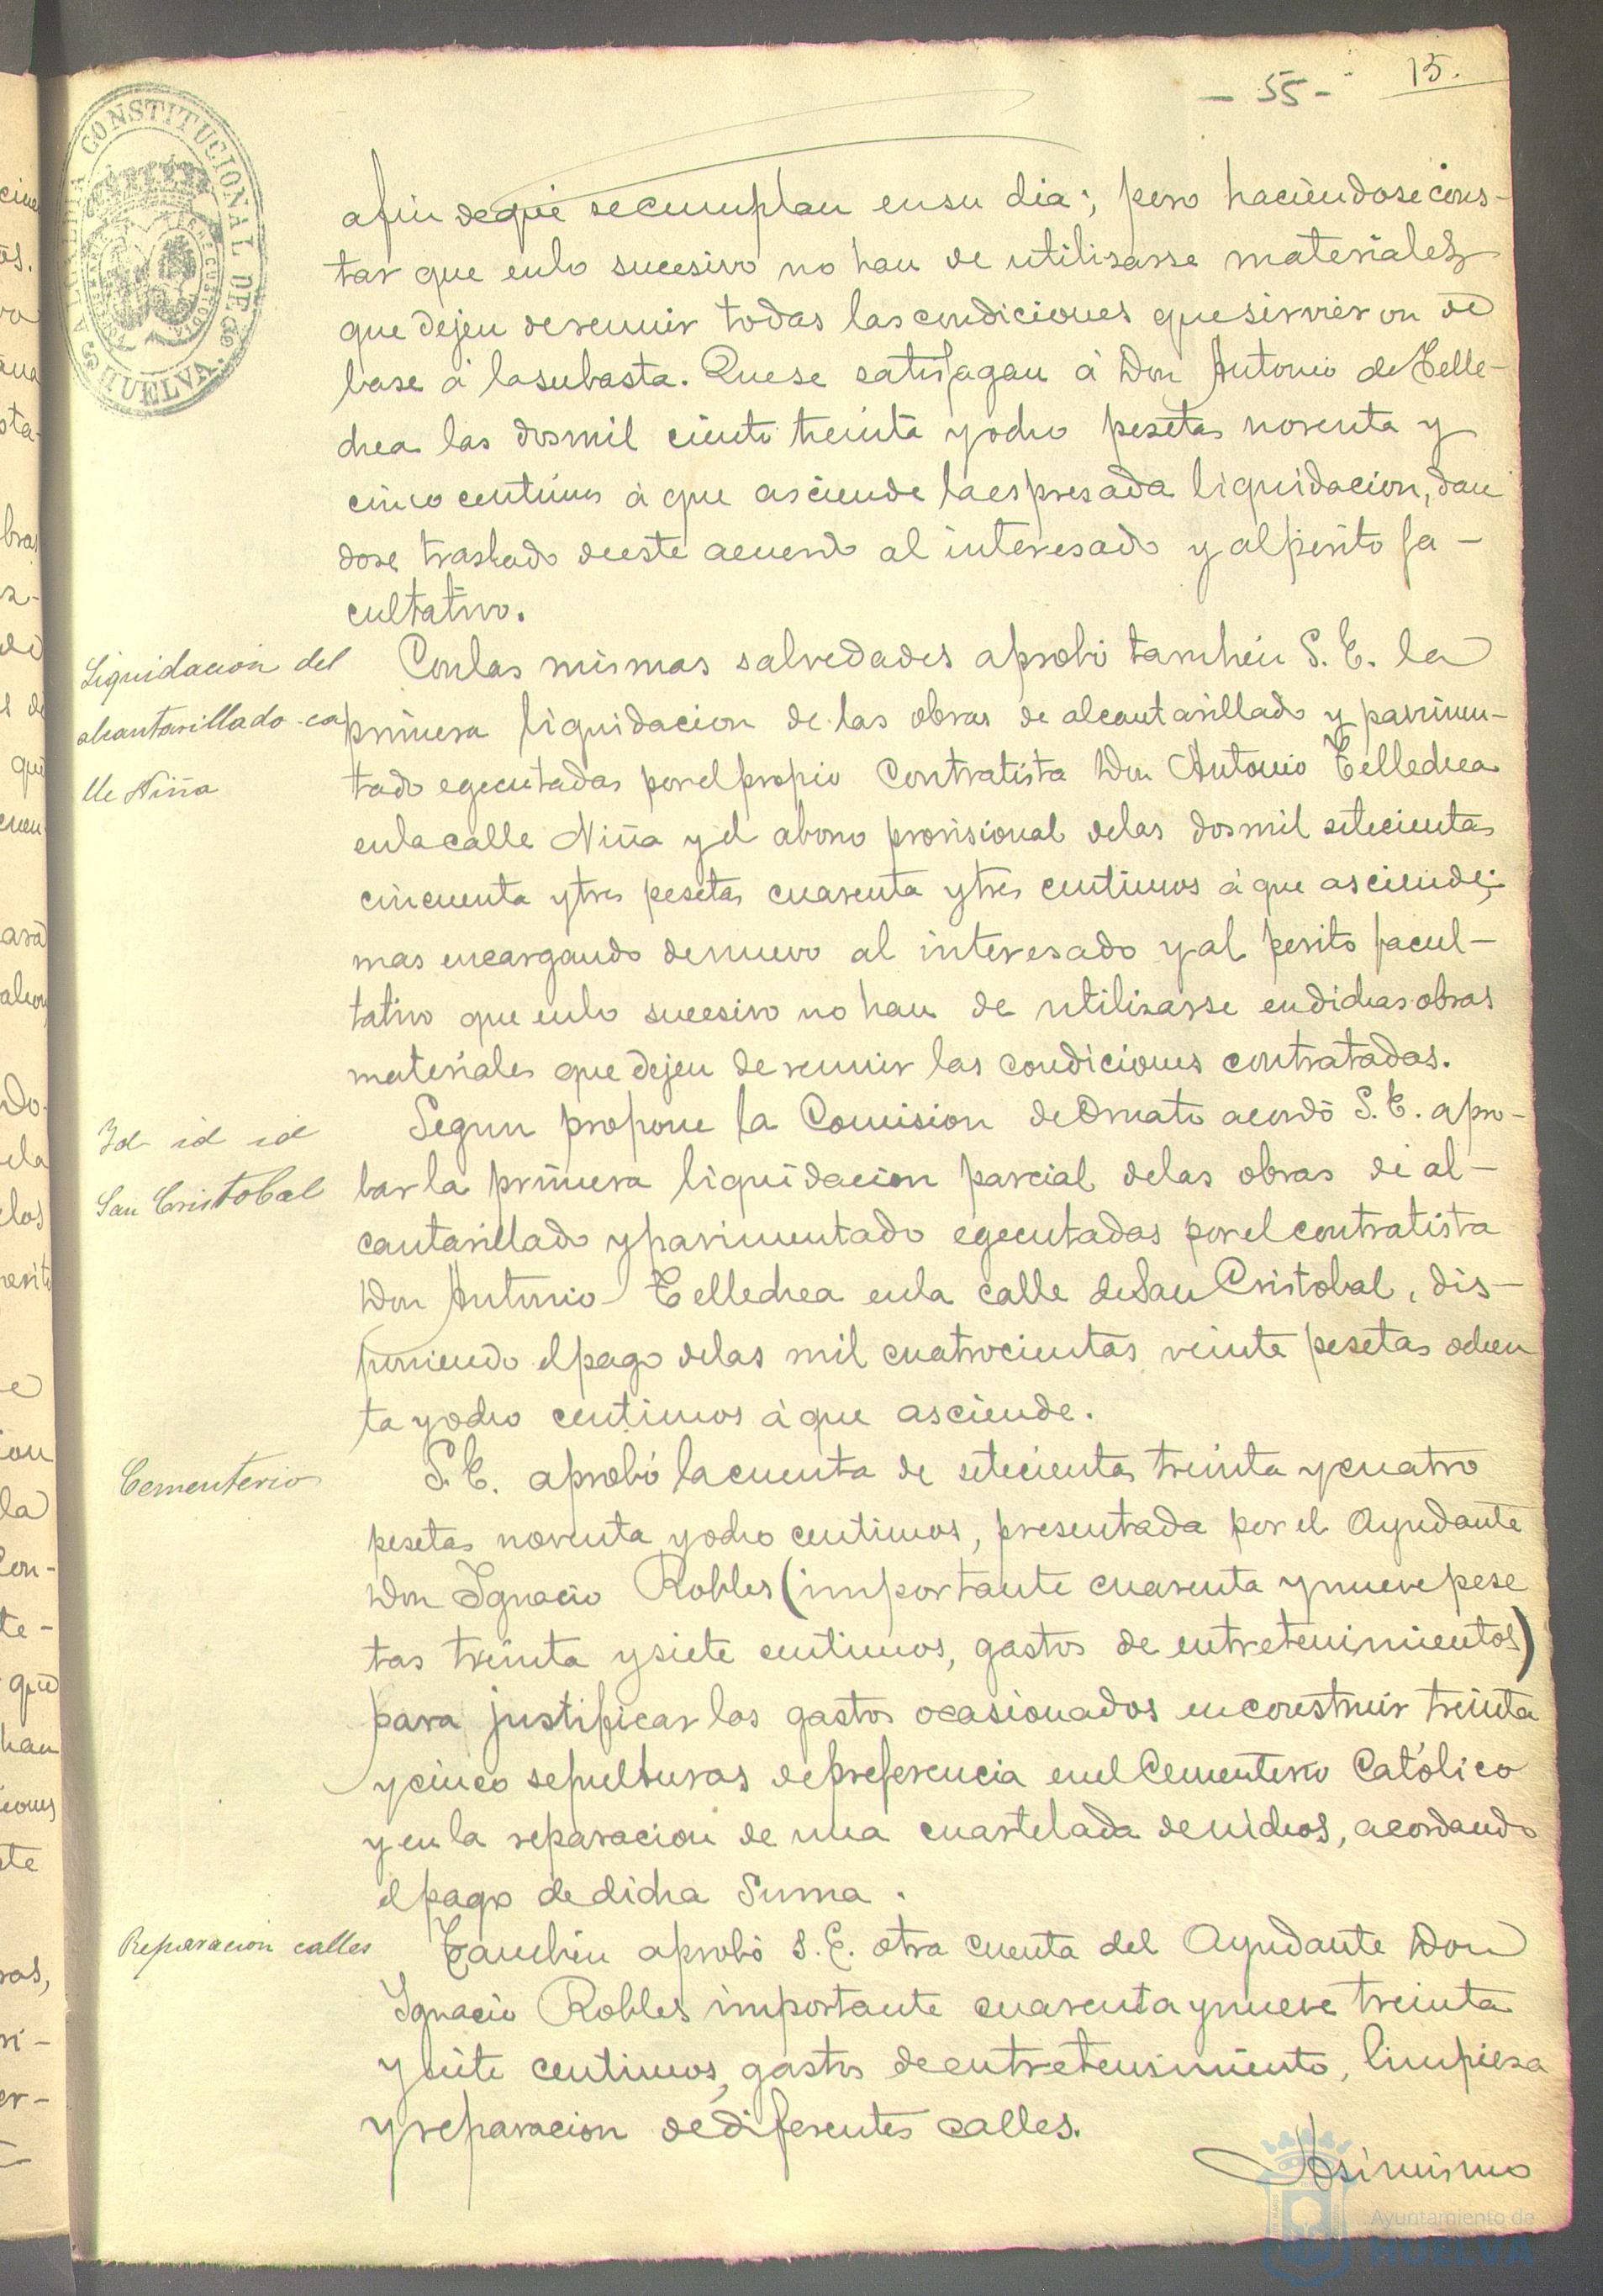 - 55 -
15.
ALCALDIA CONSTITUCIONAL DE HUELVA.
afin de que se cumplan en su dia; pero haciendose cons-
tar que en lo sucesivo no han de utilisarse materiales
que dejen de reunir todas las condiciones que sirvieron de
base á la subasta. Que se satisfagan á Don Antonio de Telle-
chea las dos mil ciento treinta y ocho pesetas noventa y
cinco centimos á que asciende la espresada liquidacion, dan
dose traslado de este acuerdo al interesado y al perito fa-
cultativo.
Liquidacion del
alcantarillado ca
lle Niña
Con las mismas salvedades aprobó tambien S. E. la
primera liquidacion de las obras de alcantarillado y pavimen-
tado egecutadas por el propio Contratista Don Antonio Tellechea
en la calle Niña y el abono provisional de las dos mil setecientas
cincuenta y tres pesetas cuarenta y tres centimos á que asciende;
mas encargando de nuevo al interesado y al perito facul-
tativo que en lo sucesivo no han de utilisarse en dichas obras
materiales que dejen de reunir las condiciones contratadas.
Id id id
San Cristobal
Segun propone la Comision de Ornato acordó S. E. apro-
bar la primera liquidacion parcial de las obras de al-
cantarillado y pavimentado egecutadas por el contratista
Don Antonio Tellechea en la calle de San Cristobal, dis-
poniendo el pago de las mil cuatrocientas veinte pesetas ochen
ta y ocho centimos á que asciende.
Cementerio
S. E. aprobó la cuenta de setecientas treinta y cuatro
pesetas noventa y ocho centimos, presentada por el Ayudante
Don Ignacio Robles (importante cuarenta y nueve pese
tas treinta y siete centimos, gastos de entretenimientos)
para justificar los gastos ocasionados en construir treinta
y cinco sepulturas de preferencia en el Cementerio Católico
y en la reparacion de una cuartelada de nichos, acordando
el pago de dicha Suma.
Reparacion calles
Tambien aprobó S. E. otra cuenta del Ayudante Don
Ignacio Robles importante cuarenta y nueve treinta
y siete centimos, gastos de entretenimiento, limpieza
y reparacion de diferentes calles.
Asimismo
Ayuntamiento de
HUELVA